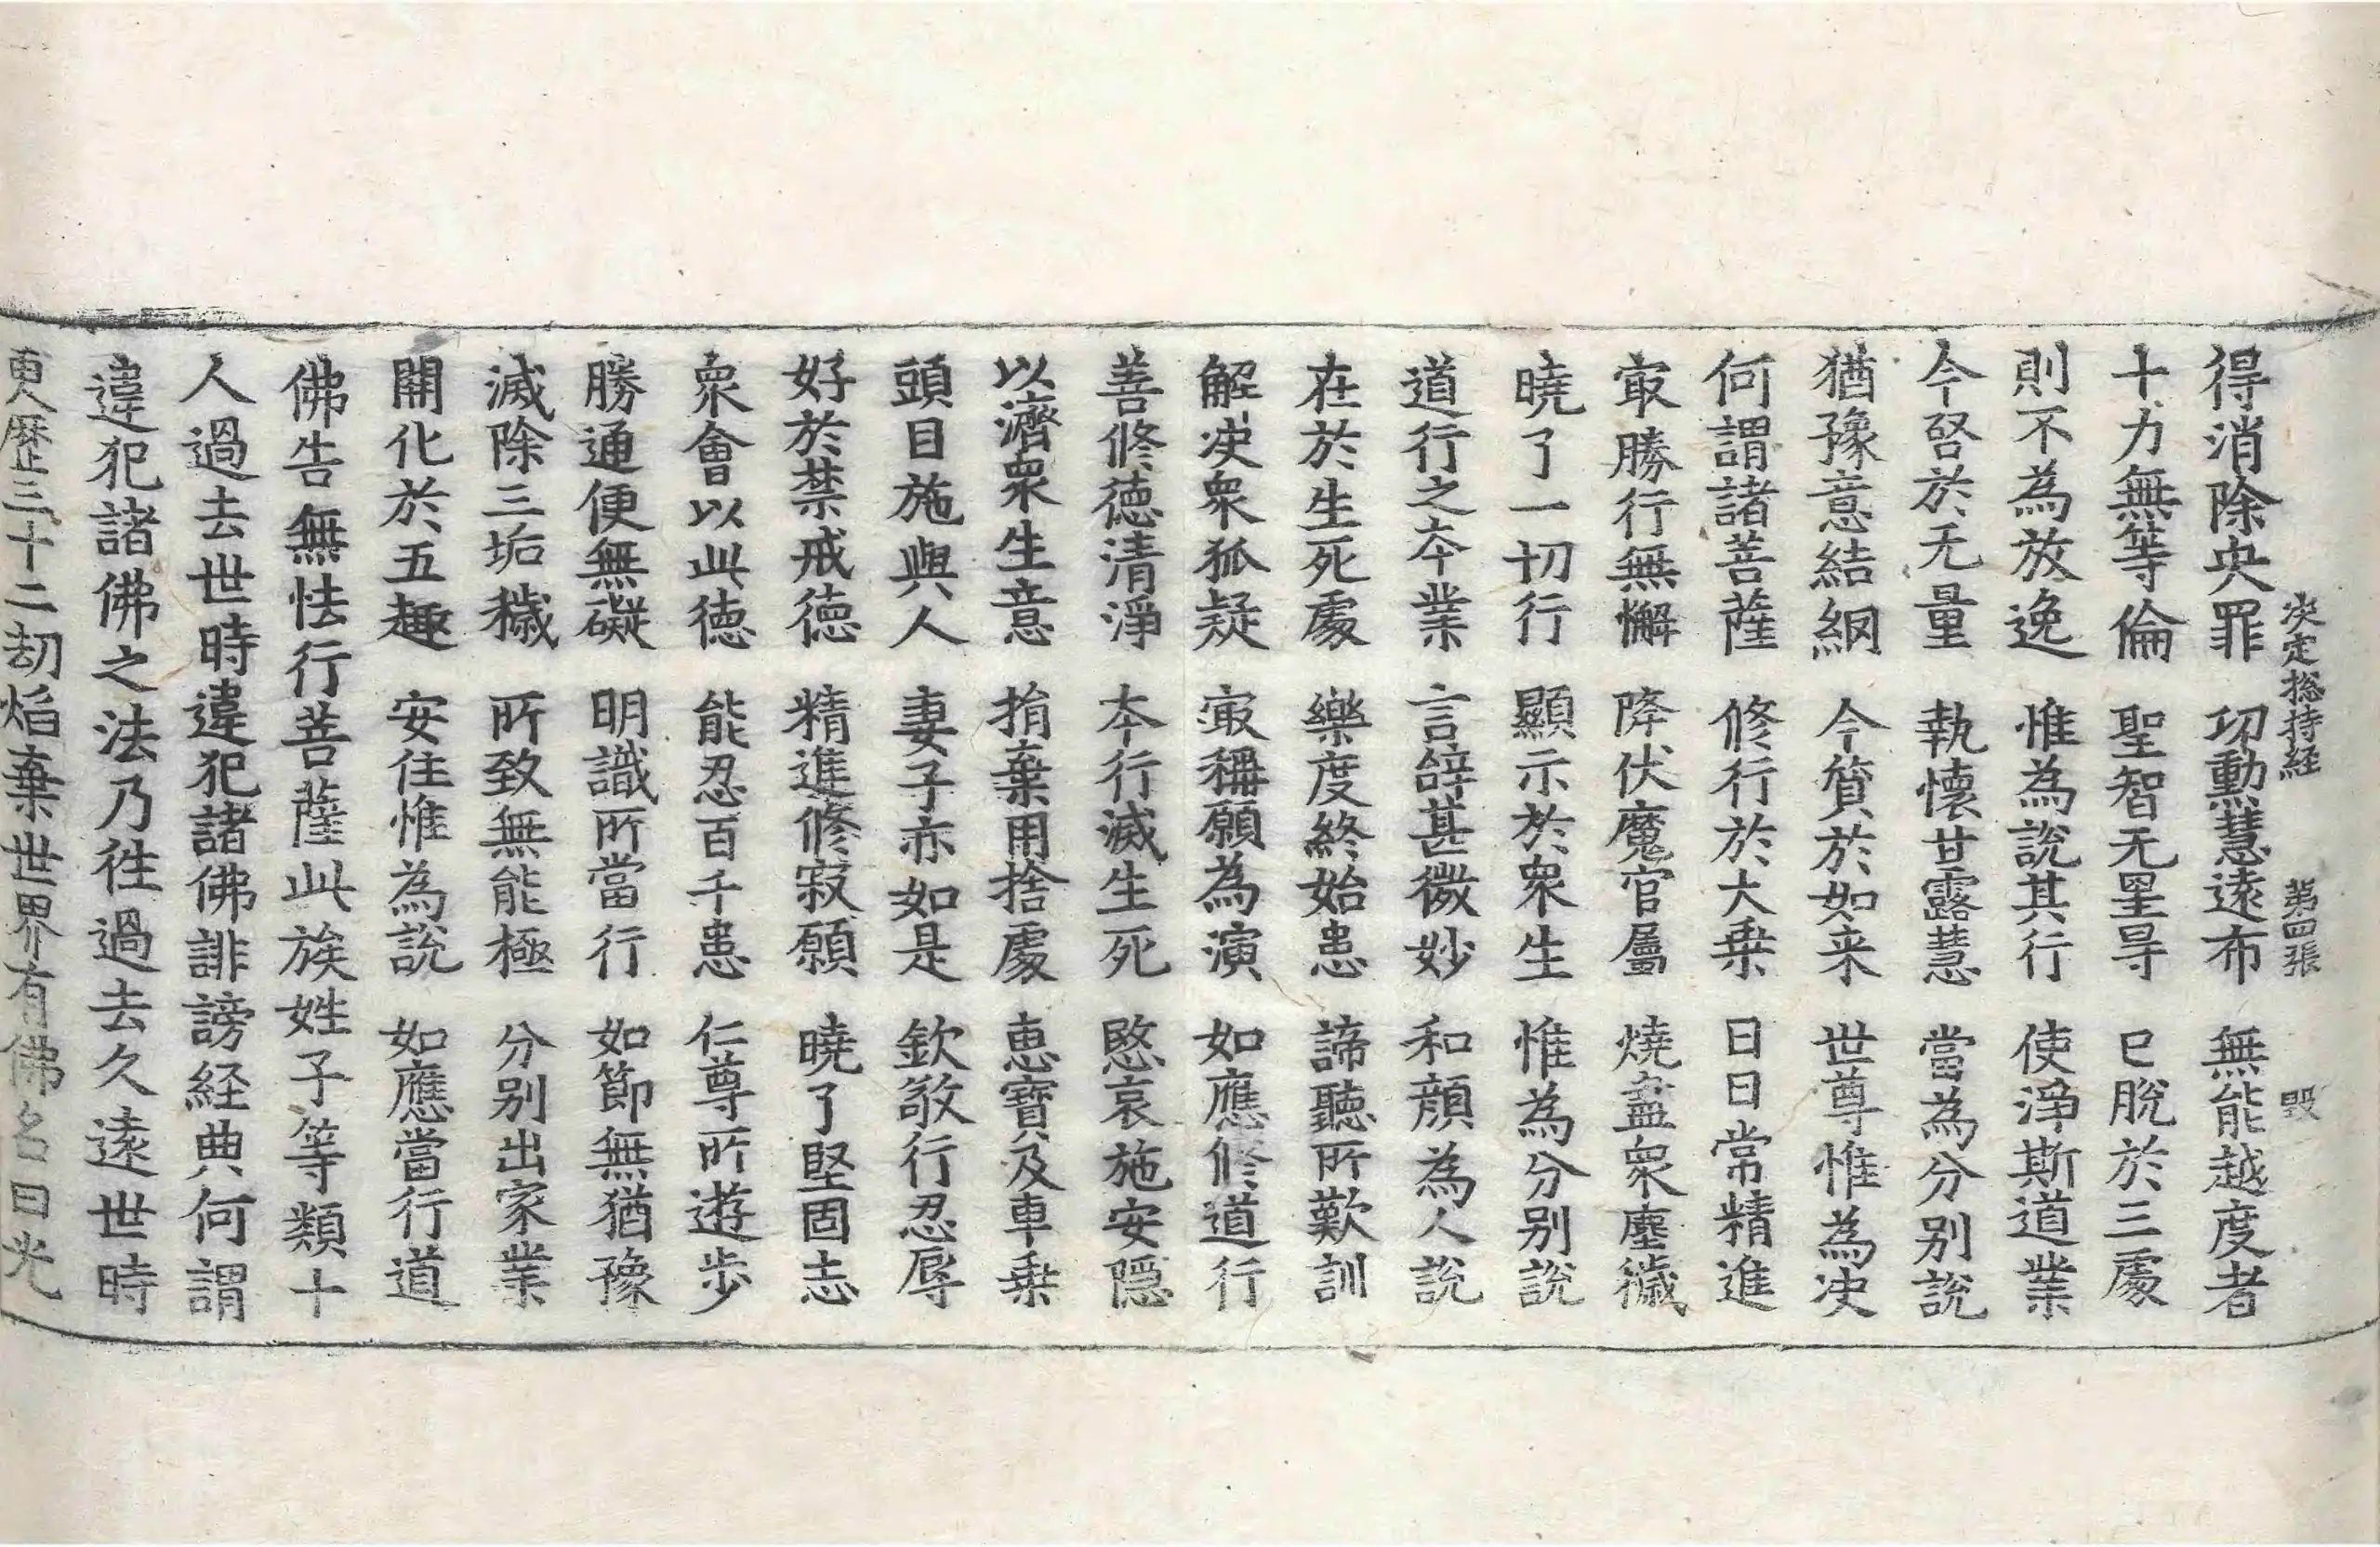 决定揔持経 第四張 毀
得消除央罪 功勳慧遠布 無能越度者
十力無等倫 聖智无罣㝵 已脫於三處
則不為放逸 惟為說其行 使淨斯道業
今咨於无量 執懷甘露慧 當為分別說
猶豫意結網 今質於如来 世尊惟為决
何謂諸菩薩 修行於大乗 日日常精進
㝡勝行無懈 降伏魔官属 燒盡衆塵穢
曉了一切行 顯示於衆生 惟為分別說
道行之夲業 言辝甚微妙 和顔為人說
在於生死處 樂度終始患 諦聽所歎訓
解决衆狐疑 㝡稱願為演 如應修道行
善修德清淨 夲行滅生死 愍哀施安隱
以濟衆生意 捐棄用捨處 恵寶及車乗
頭目施與人 妻子亦如是 欽敬行忍辱
好於禁戒德 精進修寂願 曉了堅固志
衆會以此德 能忍百千患 仁尊所遊步
勝通便無礙 明識所當行 如節無猶豫
滅除三垢穢 所致無能極 分別出家業
開化於五趣 安住惟為說 如應當行道
佛告無怯行菩薩此族姓子等類十
人過去世時違犯諸佛誹謗経典何謂
違犯諸佛之法乃徃過去久遠世時
更歷三十二劫焰棄世界有佛名曰光